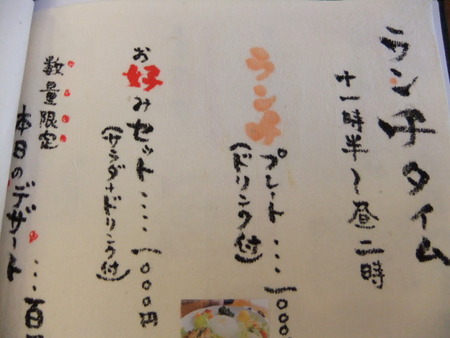 ランチタイム
十一時半～昼二時
ランチプレート…一000
(ドリンク付)
お好みセット…一000円
(サラダ+ドリンク付)
数量限定
本日のデザート…百